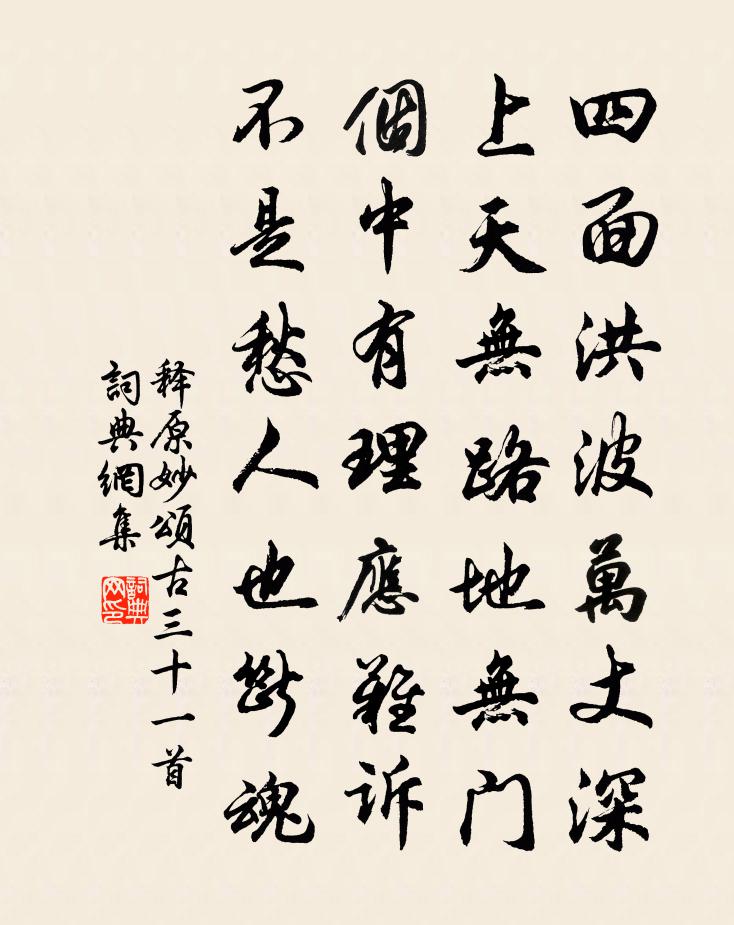 四面洪波萬丈深
上天無路地無門
個中有理應難訴
不是愁人也斷魂
释原妙頌古三十一首
詞典網集
詞典網印